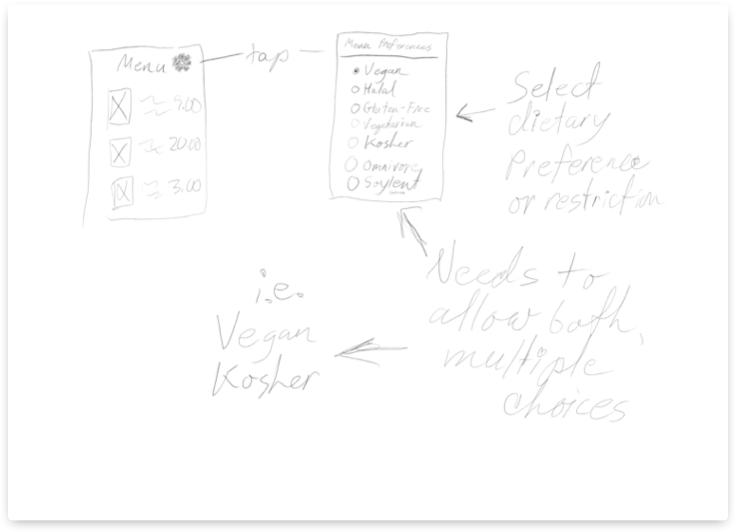 Menu
9.00
20.00
3.00
tap
Menu Preferences
Vegan
Halal
Gluten-Free
Vegetarian
Kosher
Omnivore
Soylent
Select
dietary
Preference
or restriction
Needs to
allow both,
multiple
choices
i.e.
Vegan
Kosher